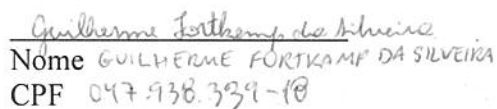 Guilherme Fortkamp da Silveira
Nome GUILHERME FORTKAMP DA SILVEIRA
CPF 047.938.339-18